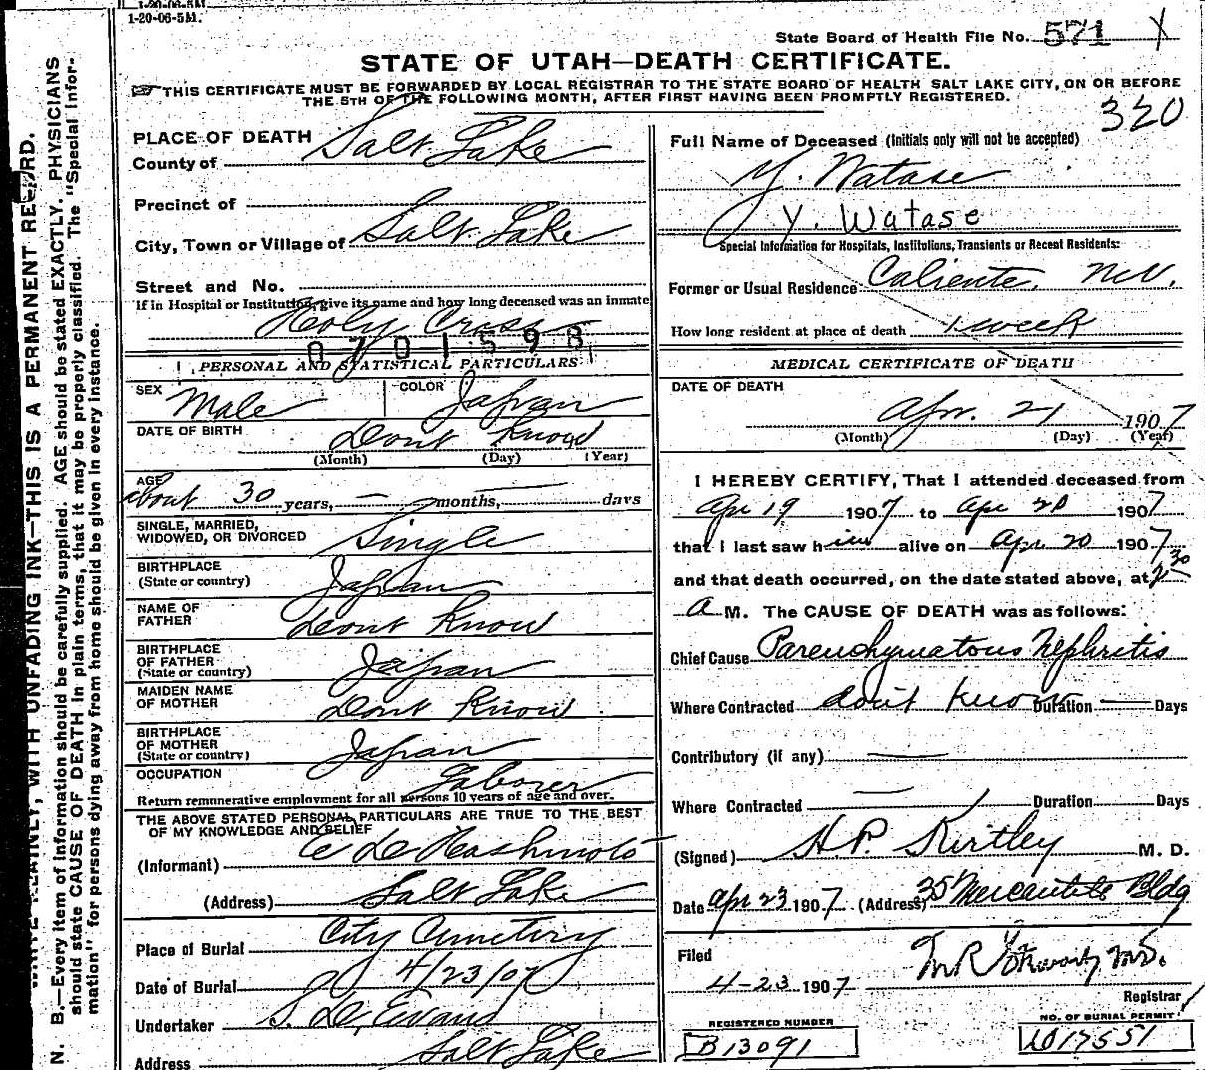 1-20-06-5M.
State Board of Health File No. 571 X
STATE OF UTAH—DEATH CERTIFICATE.
THIS CERTIFICATE MUST BE FORWARDED BY LOCAL REGISTRAR TO THE STATE BOARD OF HEALTH SALT LAKE CITY, ON OR BEFORE
THE 5TH OF THE FOLLOWING MONTH, AFTER FIRST HAVING BEEN PROMPTLY REGISTERED.
320
PLACE OF DEATH
County of Salt Lake
Precinct of
City, Town or Village of Salt Lake
Street and No.
If in Hospital or Institution, give its name and how long deceased was an inmate
Holy Cross
0701598
PERSONAL AND STATISTICAL PARTICULARS
SEX Male COLOR Japan
DATE OF BIRTH Dont Know
(Month) (Day) (Year)
AGE about 30 years, — months, — days
SINGLE, MARRIED,
WIDOWED, OR DIVORCED Single
BIRTHPLACE
(State or country) Japan
NAME OF
FATHER Dont Know
BIRTHPLACE
OF FATHER
(State or country) Japan
MAIDEN NAME
OF MOTHER Dont Know
BIRTHPLACE
OF MOTHER
(State or country) Japan
OCCUPATION Laborer
Return remunerative employment for all persons 10 years of age and over.
THE ABOVE STATED PERSONAL PARTICULARS ARE TRUE TO THE BEST
OF MY KNOWLEDGE AND BELIEF
(Informant) Hashimoto
(Address) Salt Lake
Place of Burial City Cemetery
Date of Burial 4/23/07
Undertaker S. D. Evans
Address Salt Lake
Full Name of Deceased (Initials only will not be accepted)
Y. Watase
Y. Watase
Special Information for Hospitals, Institutions, Transients or Recent Residents:
Former or Usual Residence Caliente, Nev.
How long resident at place of death 1 week
MEDICAL CERTIFICATE OF DEATH
DATE OF DEATH
Apr. 21 1907
(Month) (Day) (Year)
I HEREBY CERTIFY, That I attended deceased from
Apr 19 1907 to Apr 20 1907
that I last saw him alive on Apr 20 1907
and that death occurred, on the date stated above, at 30
a M. The CAUSE OF DEATH was as follows:
Chief Cause Parenchymatous Nephritis
Where Contracted don't know Duration — Days
Contributory (if any) —
Where Contracted — Duration Days
(Signed) H. P. Kirtley M. D.
Date Apr 23 1907 (Address) 35 Mercantile Bldg
Filed
4-23 1907 M.D.
Registrar
REGISTERED NUMBER
B13091
NO. OF BURIAL PERMIT
17551
N. B.—Every item of information should be carefully supplied. AGE should be stated EXACTLY. PHYSICIANS
should state CAUSE OF DEATH in plain terms, that it may be properly classified. The "Special Infor-
mation" for persons dying away from home should be given in every instance.
PLAINLY, WITH UNFADING INK—THIS IS A PERMANENT RECORD.